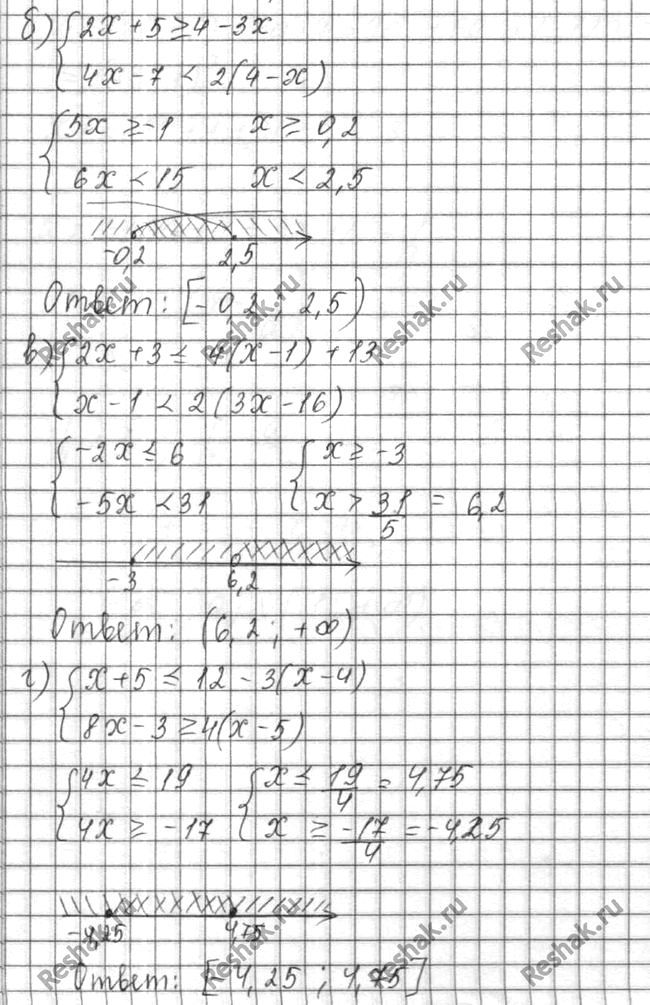 б) { 2x + 5 ≥ 4 - 3x
4x - 7 < 2(4 - x)
{ 5x ≥ -1 x ≥ 0,2
6x < 15 x < 2,5
-0,2 2,5
Ответ: [-0,2 ; 2,5)
в) { 2x + 3 ≤ 4(x - 1) + 13
x - 1 < 2(3x - 16)
{ -2x ≤ 6 { x ≥ -3
-5x < 31 x > 31/5 = 6,2
-3 6,2
Ответ: (6,2 ; +∞)
г) { x + 5 ≤ 12 - 3(x - 4)
8x - 3 ≥ 4(x - 5)
{ 4x ≤ 19 { x ≤ 19/4 = 4,75
4x ≥ -17 x ≥ -17/4 = -4,25
-4,25 4,75
Ответ: [-4,25 ; 4,75]
Reshak.ru
Reshak.ru
Reshak.ru
Reshak.ru
Reshak.ru
Reshak.ru
Reshak.ru
Reshak.ru